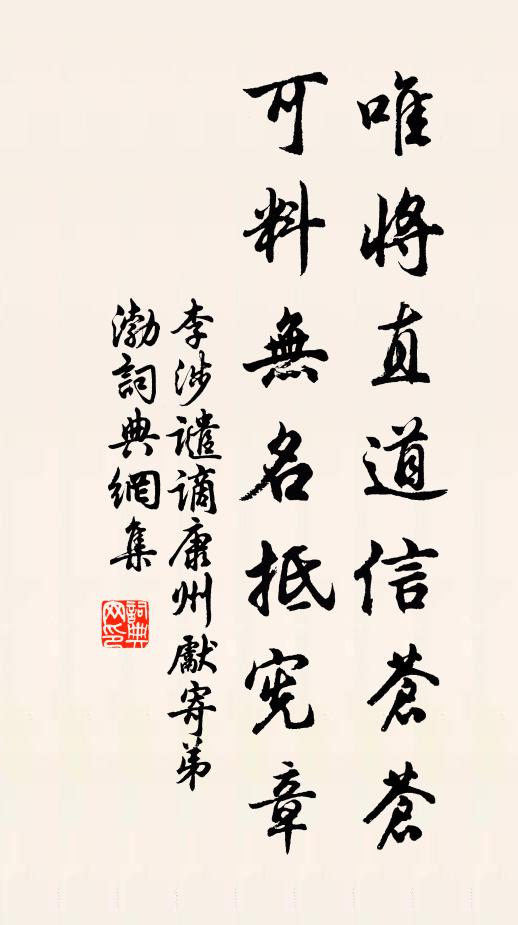 唯將直道信蒼蒼
可料無名抵憲章
李涉譴謫康州獻寄弟
渤詞典網集
詞典
网印